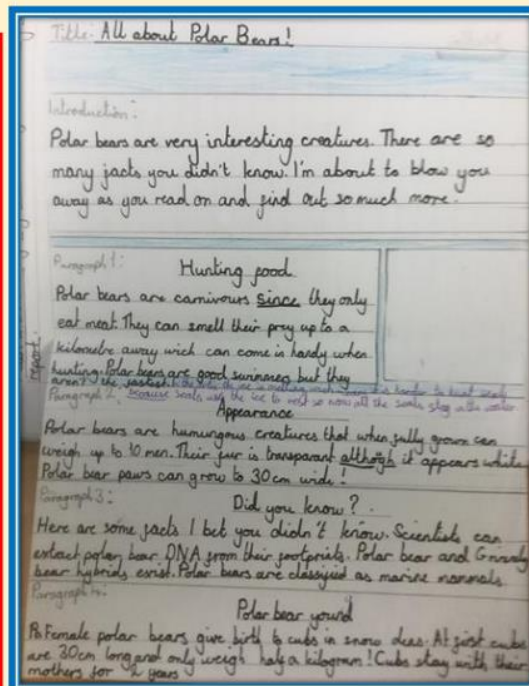 Title: All about Polar Bears!
Introduction:
Polar bears are very interesting creatures. There are so
many facts you didn't know. I'm about to blow you
away as you read on and find out so much more.
Paragraph 1:
Hunting food
Polar bears are carnivours since they only
eat meat. They can smell their prey up to a
kilometre away wich can come in handy when
hunting. Polar bears are good swimmers but they
aren't the fastest. the ice is melting wich harder to hunt
because seals use the ice to rest so now all the seals stay in the water.
report.
Paragraph 2:
Appearance
Polar bears are humungous creatures that when fully grown can
weigh up to 10 men. Their fur is transparant although it appears white
Polar bear paws can grow to 30cm wide!
Paragraph 3:
Did you know?
Here are some facts I bet you didn't know. Scientists can
extract polar bear DNA from their footprints. Polar bear and
bear hybrids exist. Polar bears are classified as marine mammals.
Paragraph 4:
Polar bear yound
Female polar bears give birth to cubs in snow dens. At first cubs
are 30cm long and only weigh half a kilogram! Cubs stay with their
mothers for 2 years